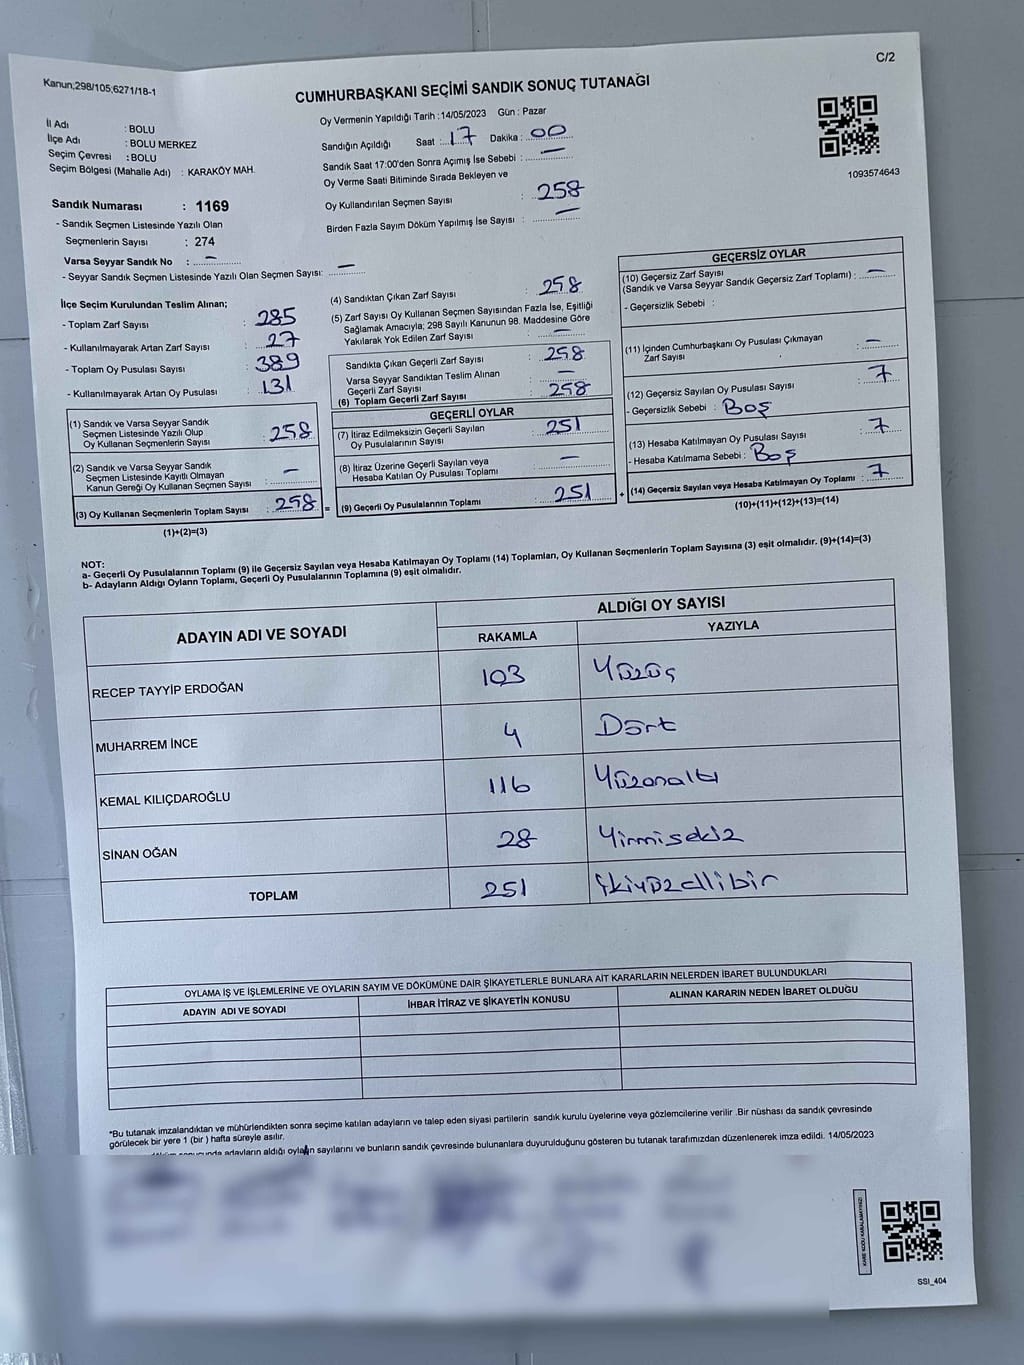 C/2
Kanun;298/105;6271/18-1
CUMHURBAŞKANI SEÇİMİ SANDIK SONUÇ TUTANAĞI
İl Adı : BOLU
İlçe Adı : BOLU MERKEZ
Seçim Çevresi : BOLU
Seçim Bölgesi (Mahalle Adı) : KARAKÖY MAH.
Sandık Numarası : 1169
- Sandık Seçmen Listesinde Yazılı Olan
Seçmenlerin Sayısı : 274
Varsa Seyyar Sandık No : –
- Seyyar Sandık Seçmen Listesinde Yazılı Olan Seçmen Sayısı: –
Oy Vermenin Yapıldığı Tarih :14/05/2023 Gün : Pazar
Sandığın Açıldığı Saat : 17 Dakika : 00
Sandık Saat 17:00'den Sonra Açımış İse Sebebi : –
Oy Verme Saati Bitiminde Sırada Bekleyen ve
Oy Kullandırılan Seçmen Sayısı : 258
Birden Fazla Sayım Döküm Yapılmış İse Sayısı : –
1093574643
İlçe Seçim Kurulundan Teslim Alınan;
- Toplam Zarf Sayısı : 285
- Kullanılmayarak Artan Zarf Sayısı : 27
- Toplam Oy Pusulası Sayısı : 389
- Kullanılmayarak Artan Oy Pusulası : 131
(1) Sandık ve Varsa Seyyar Sandık
Seçmen Listesinde Yazılı Olup
Oy Kullanan Seçmenlerin Sayısı : 258
(2) Sandık ve Varsa Seyyar Sandık
Seçmen Listesinde Kayıtlı Olmayan
Kanun Gereği Oy Kullanan Seçmen Sayısı : –
(3) Oy Kullanan Seçmenlerin Toplam Sayısı : 258 =
(1)+(2)=(3)
(4) Sandıktan Çıkan Zarf Sayısı : 258
(5) Zarf Sayısı Oy Kullanan Seçmen Sayısından Fazla İse, Eşitliği
Sağlamak Amacıyla; 298 Sayılı Kanunun 98. Maddesine Göre
Yakılarak Yok Edilen Zarf Sayısı : –
Sandıkta Çıkan Geçerli Zarf Sayısı : 258
Varsa Seyyar Sandıktan Teslim Alınan
Geçerli Zarf Sayısı : –
(6) Toplam Geçerli Zarf Sayısı : 258
GEÇERLİ OYLAR
(7) İtiraz Edilmeksizin Geçerli Sayılan
Oy Pusulalarının Sayısı : 251
(8) İtiraz Üzerine Geçerli Sayılan veya
Hesaba Katılan Oy Pusulası Toplamı : –
(9) Geçerli Oy Pusulalarının Toplamı : 251 +
GEÇERSİZ OYLAR
(10) Geçersiz Zarf Sayısı
(Sandık ve Varsa Seyyar Sandık Geçersiz Zarf Toplamı) : –
- Geçersizlik Sebebi :
(11) İçinden Cumhurbaşkanı Oy Pusulası Çıkmayan
Zarf Sayısı : –
(12) Geçersiz Sayılan Oy Pusulası Sayısı : 7
- Geçersizlik Sebebi : Boş
(13) Hesaba Katılmayan Oy Pusulası Sayısı : 7
- Hesaba Katılmama Sebebi : Boş
(14) Geçersiz Sayılan veya Hesaba Katılmayan Oy Toplamı : 7
(10)+(11)+(12)+(13)=(14)
NOT:
a- Geçerli Oy Pusulalarının Toplamı (9) ile Geçersiz Sayılan veya Hesaba Katılmayan Oy Toplamı (14) Toplamları, Oy Kullanan Seçmenlerin Toplam Sayısına (3) eşit olmalıdır. (9)+(14)=(3)
b- Adayların Aldığı Oyların Toplamı, Geçerli Oy Pusulalarının Toplamına (9) eşit olmalıdır.
ADAYIN ADI VE SOYADI
ALDIĞI OY SAYISI
RAKAMLA YAZIYLA
RECEP TAYYİP ERDOĞAN 103 Yüzüç
MUHARREM İNCE 4 Dört
KEMAL KILIÇDAROĞLU 116 Yüzonaltı
SİNAN OĞAN 28 Yirmisekiz
TOPLAM 251 İkiyüzellibir
OYLAMA İŞ VE İŞLEMLERİNE VE OYLARIN SAYIM VE DÖKÜMÜNE DAİR ŞİKAYETLERLE BUNLARA AİT KARARLARIN NELERDEN İBARET BULUNDUKLARI
ADAYIN ADI VE SOYADI İHBAR İTİRAZ VE ŞİKAYETİN KONUSU ALINAN KARARIN NEDEN İBARET OLDUĞU
*Bu tutanak imzalandıktan ve mühürlendikten sonra seçime katılan adayların ve talep eden siyasi partilerin sandık kurulu üyelerine veya gözlemcilerine verilir .Bir nüshası da sandık çevresinde
görülecek bir yere 1 (bir ) hafta süreyle asılır.
adayların aldığı oyların sayılarını ve bunların sandık çevresinde bulunanlara duyurulduğunu gösteren bu tutanak tarafımızdan düzenlenerek imza edildi. 14/05/2023
KARE KODU KARALAMAYINIZ!
SSI_404